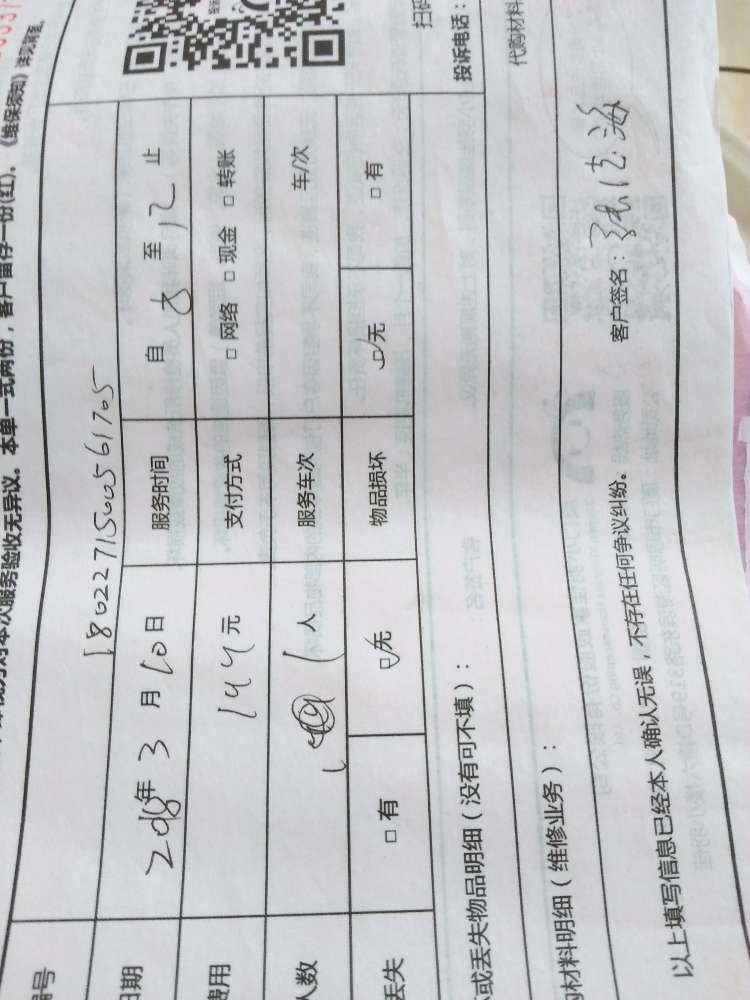 本次服务验收无异议。本单一式两份，客户留存一份(红)。《维保须知》详见背面。
编号 1802271500561705
日期 2018年3月10日 服务时间 自 8 至 12 止
费用 144元 支付方式 □网络 □现金 □转账
人数 1人 服务车次 车/次
丢失 □有 ☑无 物品损坏 ☑无 □有
或丢失物品明细（没有可不填）：
扫码
投诉电话：
材料明细（维修业务）：
代购材料
以上填写信息已经本人确认无误，不存在任何争议纠纷。 客户签名：